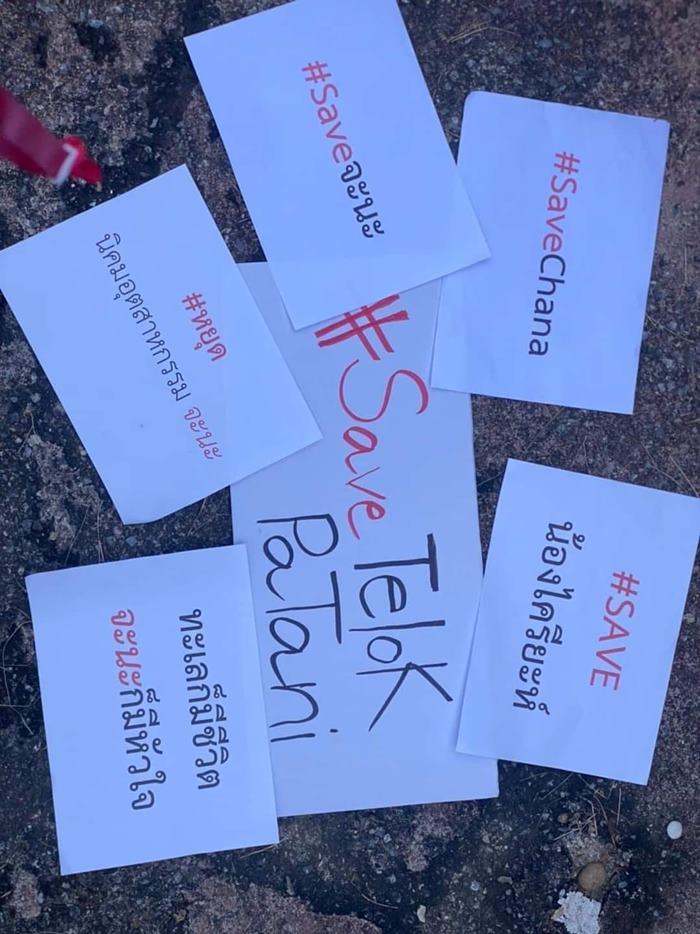 #SaveChana
#SAVE
น้องไครียะห์
#Saveจะนะ
#Save Telok
PaTani
#หยุด
นิคมอุตสาหกรรม จะนะ
ทะเลก็มีชีวิต
จะนะก็มีหัวใจ